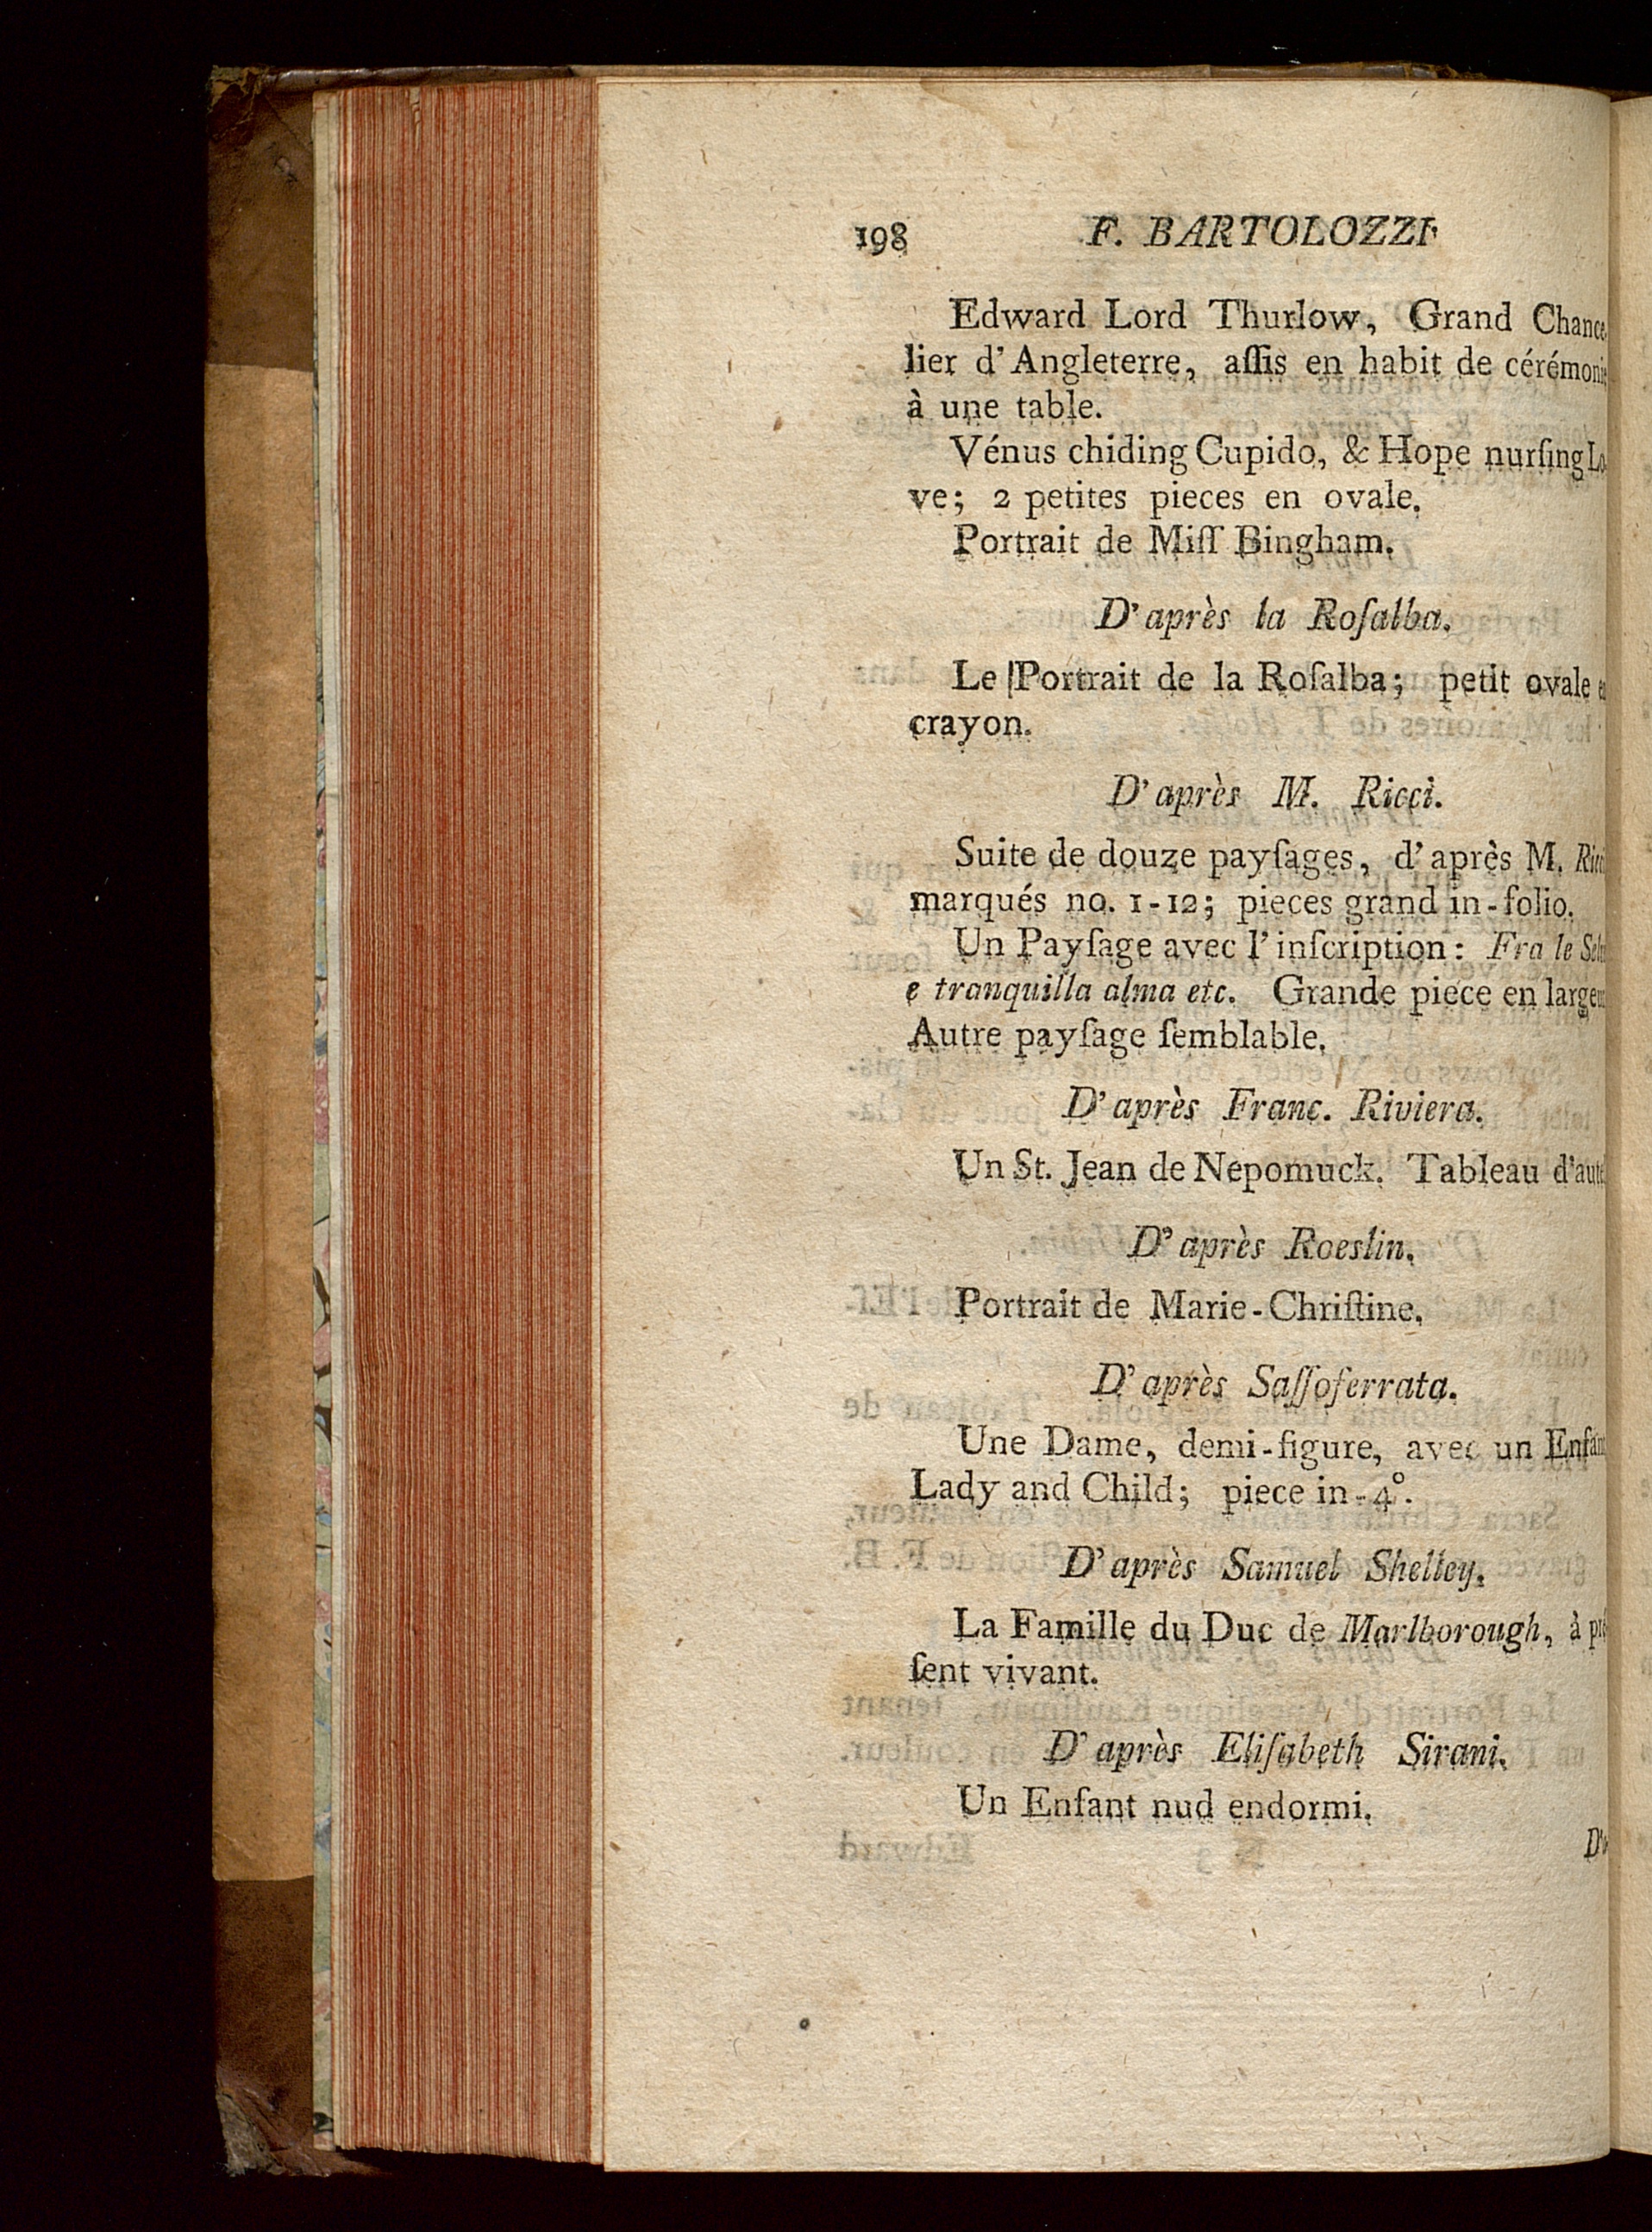 198 F. BARTOLOZZI
Edward Lord Thurlow, Grand Chance
lier d'Angleterre, aſſis en habit de cérémonie
à une table.
Vénus chiding Cupido, & Hope nurſing Lo
ve; 2 petites pieces en ovale.
Portrait de Miſſ Bingham.
D'après la Roſalba.
Le Portrait de la Roſalba; petit ovale en
crayon.
D'après M. Ricci.
Suite de douze payſages, d'après M. Ricci
marqués no. 1-12; pieces grand in-folio.
Un Payſage avec l'inſcription: Fra le Selv
e tranquilla alma etc. Grande piece en largeur
Autre payſage ſemblable.
D'après Franc. Riviera.
Un St. Jean de Nepomuck. Tableau d'autel
D'après Roeslin.
Portrait de Marie-Chriſtine.
D'après Saſſoferrata.
Une Dame, demi-figure, avec un Enfant
Lady and Child; piece in-4°.
D'après Samuel Shelley.
La Famille du Duc de Marlborough, à pré
ſent vivant.
D'après Eliſabeth Sirani.
Un Enfant nud endormi.
D'a